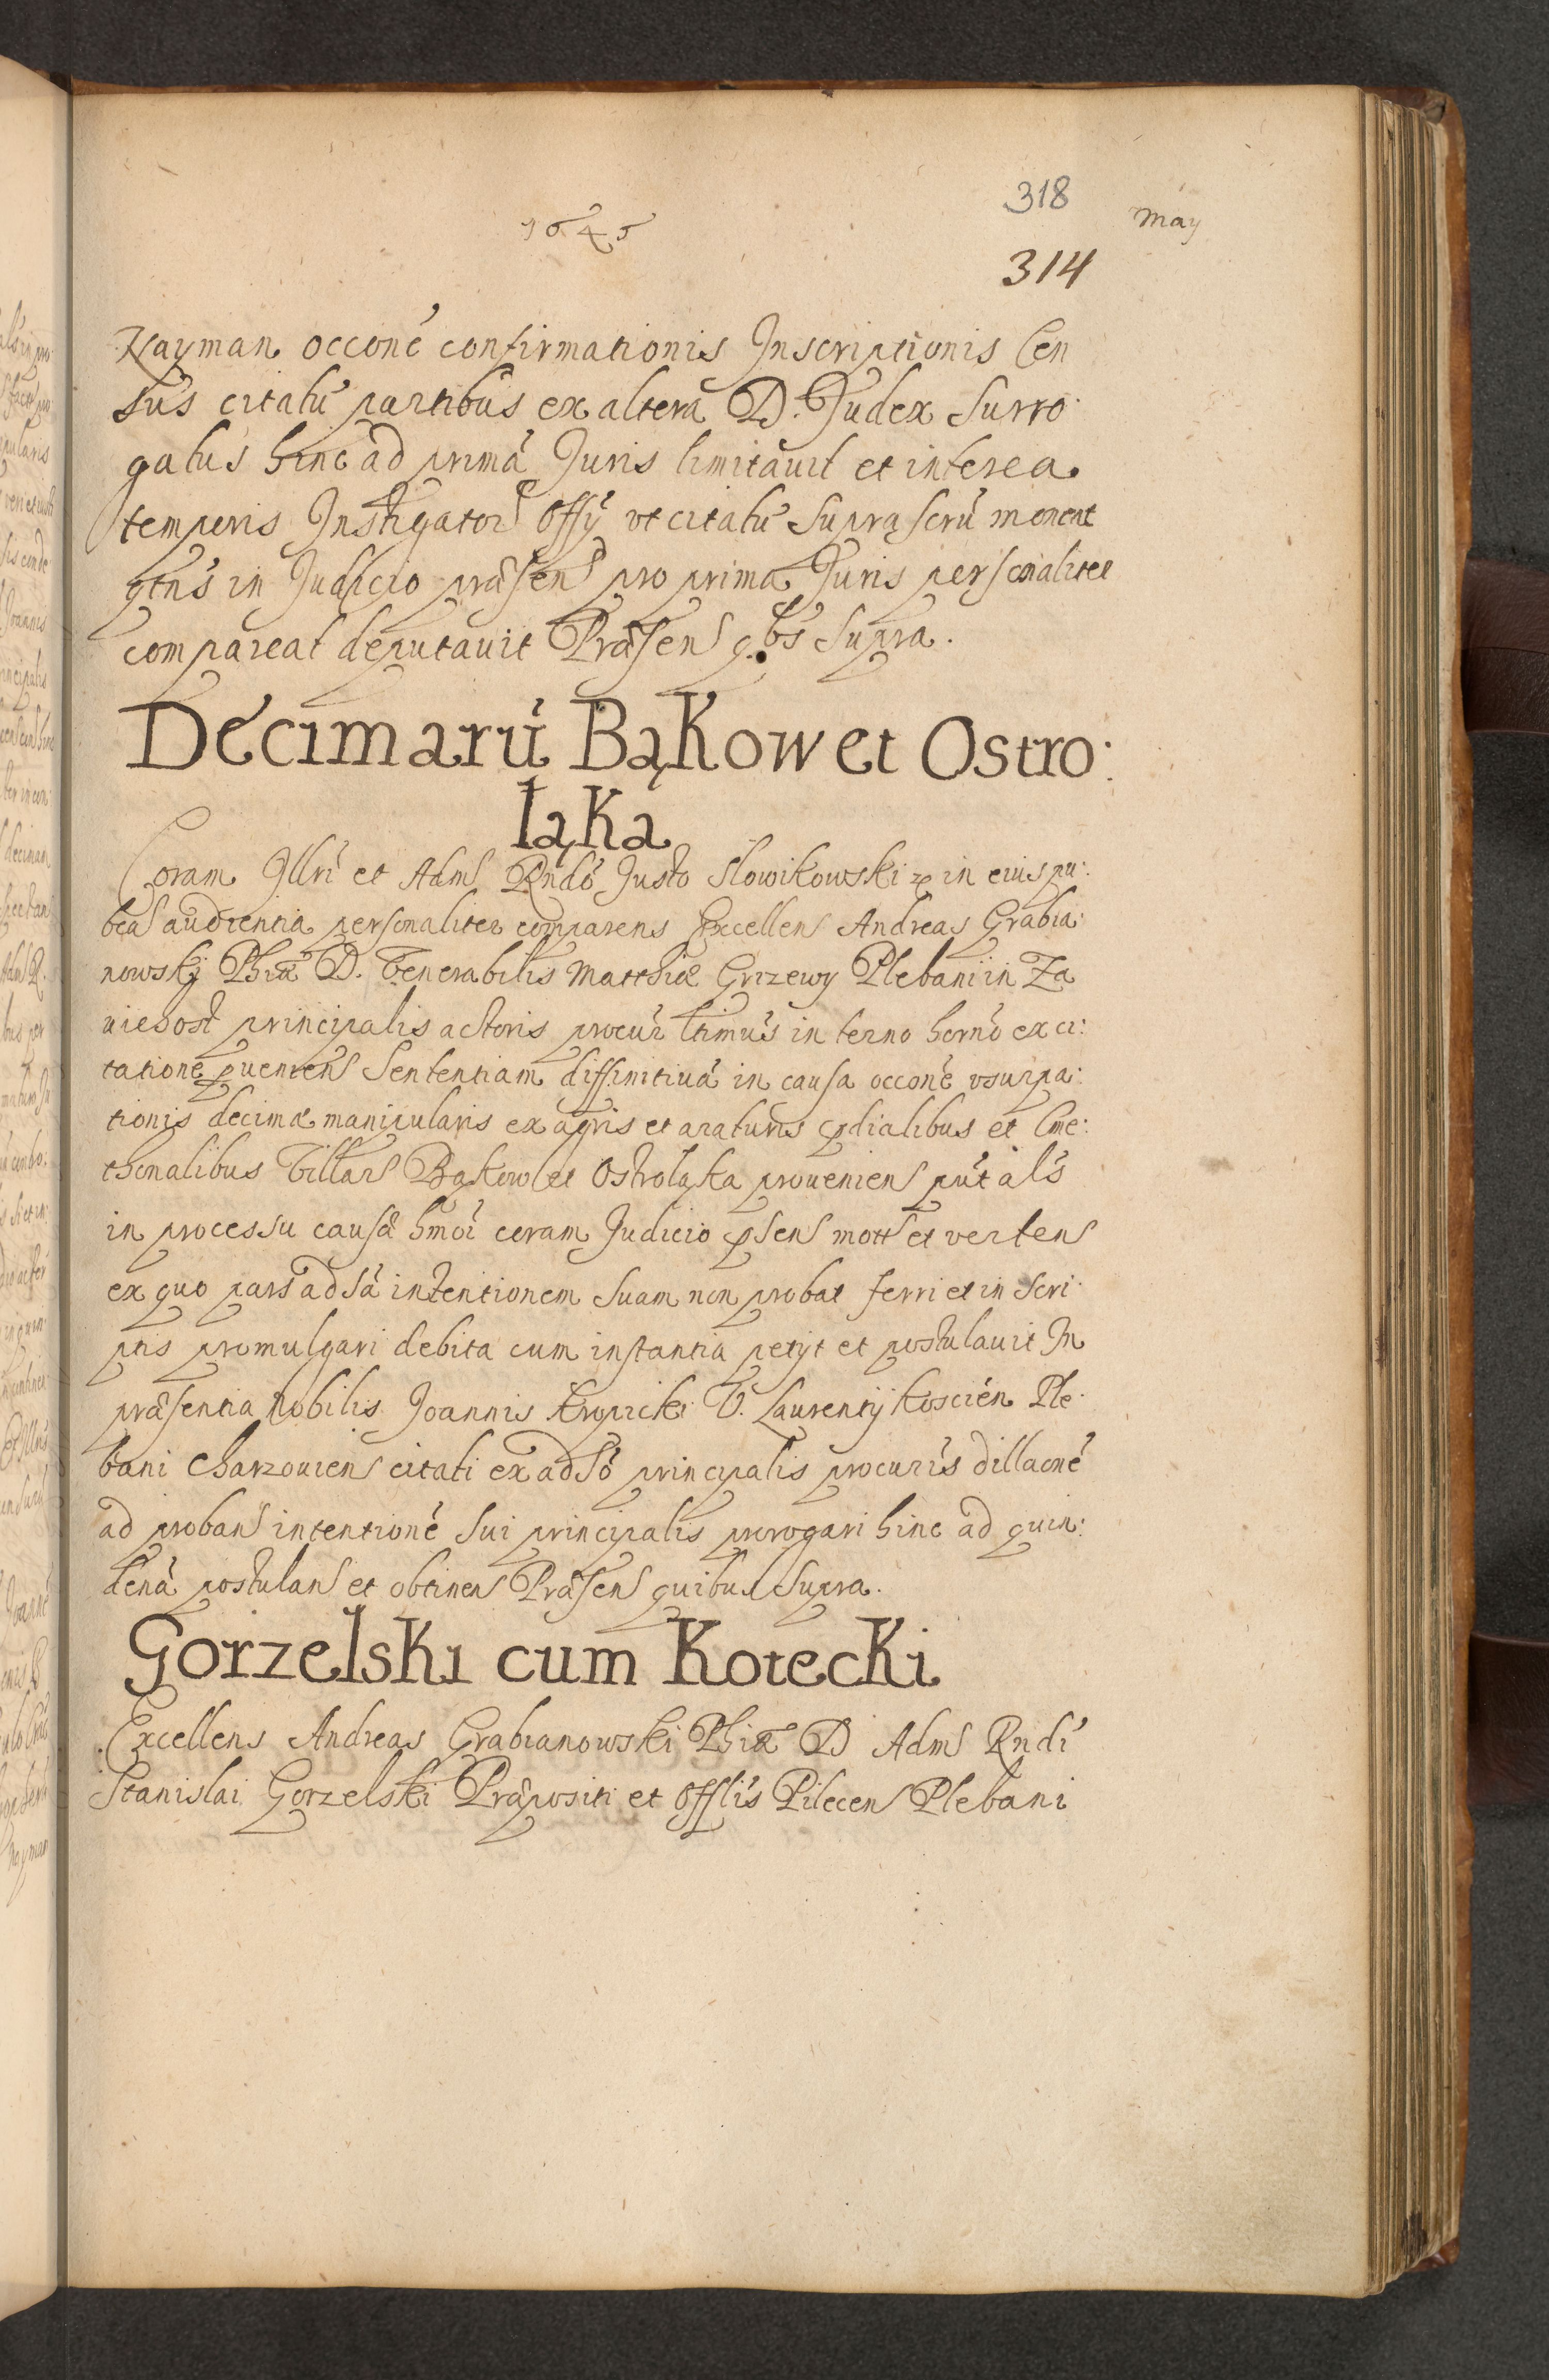 318
1645
May
314
Kayman occone confirmationis Inscriptionis Cen
sus citatū partibus ex altera D. Judex Surro:
gatus hinc ad primā Juris limitavit et interea
temporis Instigator Offÿ vt citatū suprascrū moneat
qtns in Judicio præsen pro prima Juris personaliter
compareat deputavit Præsen qbs supra.
Decimarū Bąkow et Ostro:
łąka
Coram Illri et Adm Rndo Justo Słowikowski in eius pu:
bca audientia personaliter comparens Excellens Andreas Grabia:
nowskj Phiæ D. Venerabilis Matthiæ Grizewy Plebani in Za
viehost principalis actoris procur ltimus in terno horno ex ci:
tatione pvenien Sententiam diffinitivā in causa occone vsurpa:
tionis decimæ manipularis ex agris et araturis pdialibus et Cme:
thonalibus Villar Bąkow et Ostrołąka provenien put als
in processu causæ hmoi coram Judicio psen mott et verten
ex quo pars adsa intentionem suam non probat ferri et in scri:
ptis promulgari debita cum instantia petÿt et postulavit In
præsentia Nobilis Joannis Kropicki V. Laurentÿ Koscien Ple:
bani Charzovien citati ex adso principalis procuris dillacone
ad proban intentione sui principalis prorogari hinc ad quin:
denā postulan et obtinen Præsen quibus supra.
Gorzelski cum Kotecki
Excellens Andreas Grabianowski Phiæ D Adm Rndi
Stanislai Gorzelski Præpositi et Offlis Pilecen Plebani